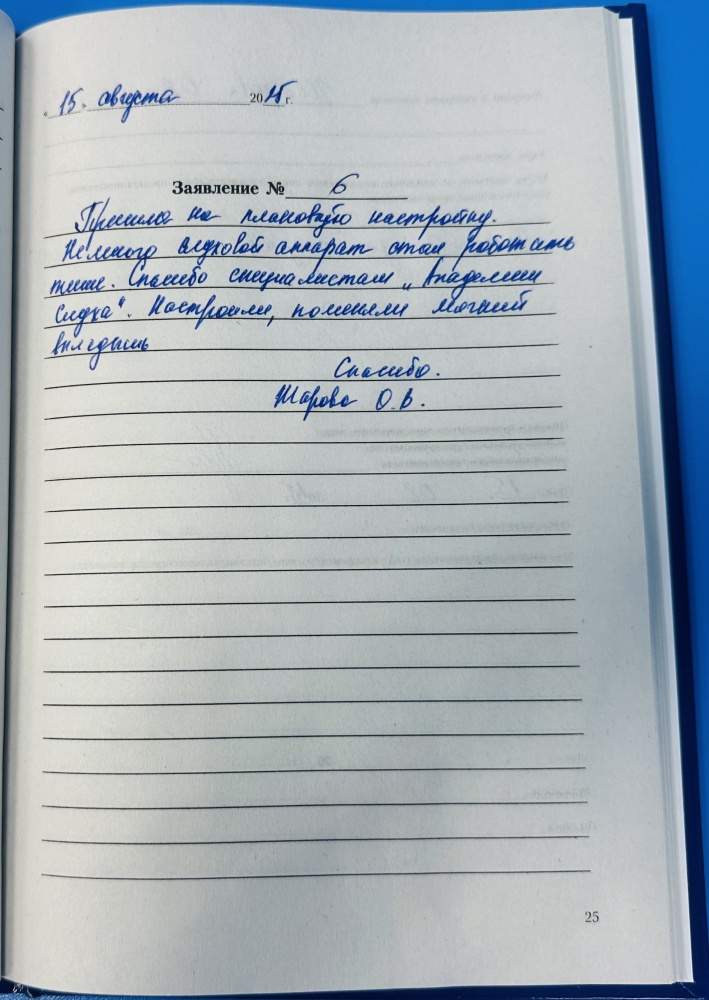 « 15 » августа 2025 г.
Заявление № 6
Пришла на плановую настройку.
Немного слуховой аппарат стал работать
тише. Спасибо специалистам „Академии
Слуха". Настроили, поменяли мягкий
вкладышь
Спасибо.
Шарова О.В.
25